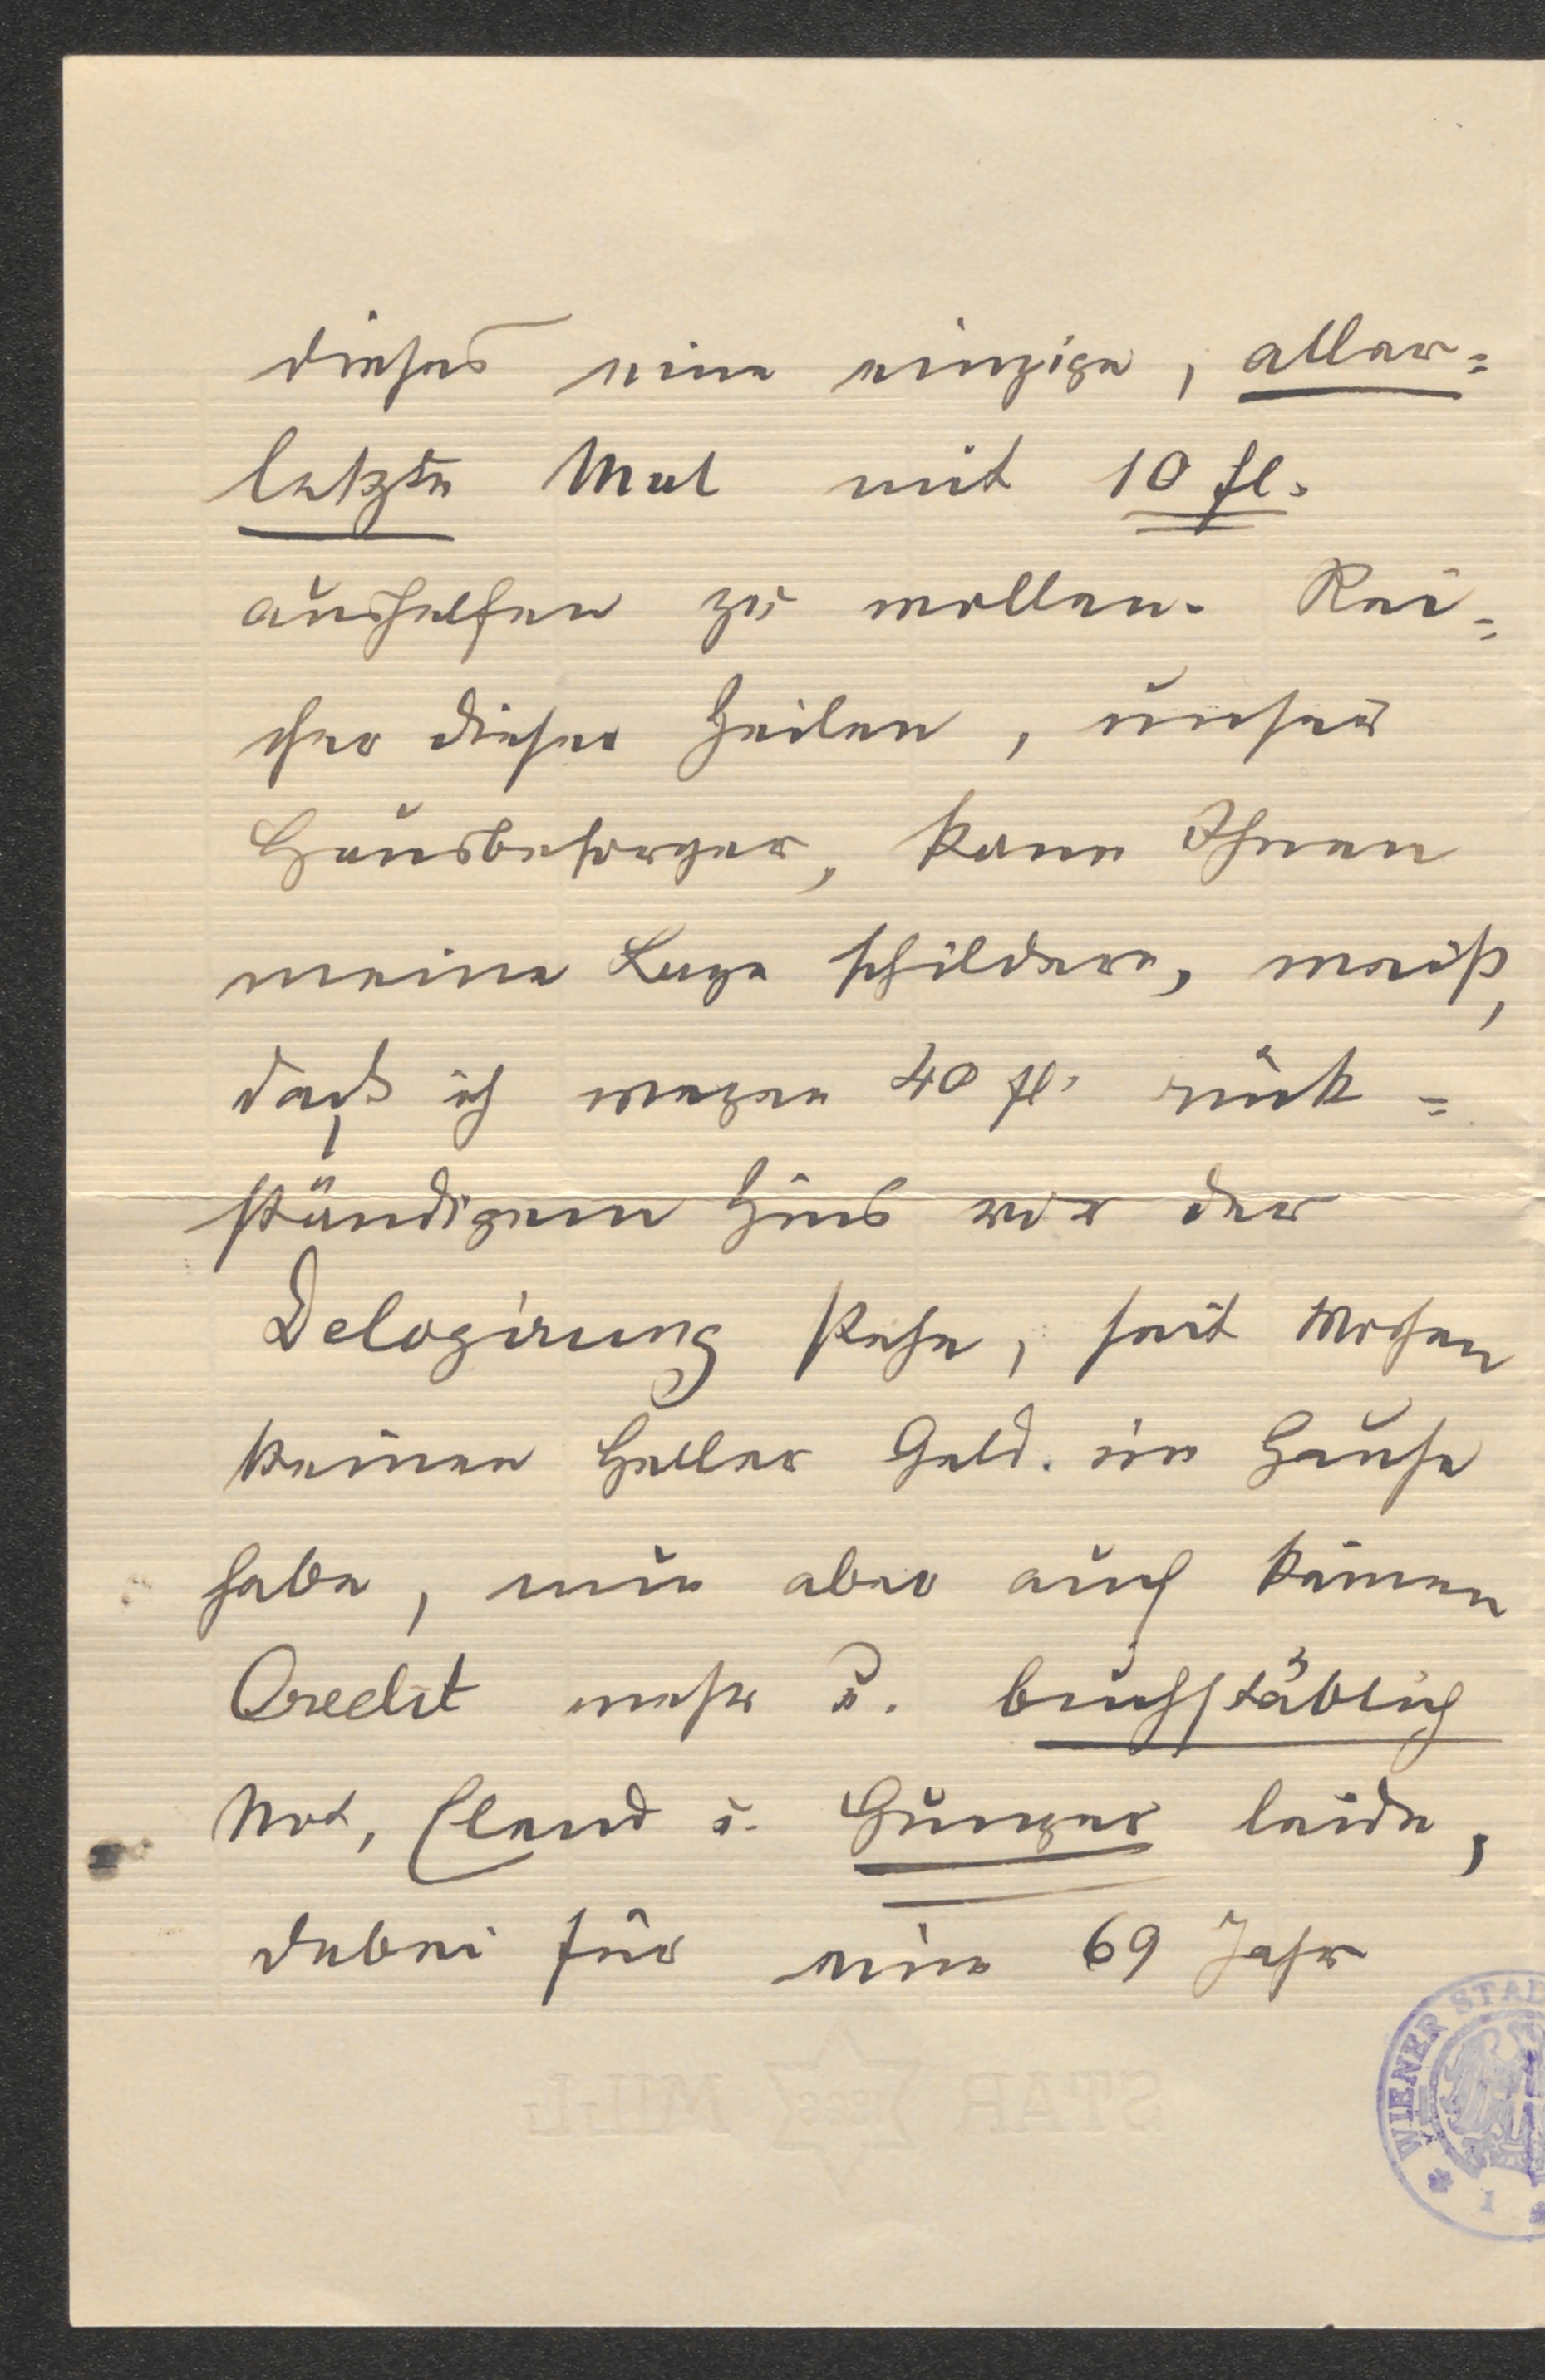 dieses eine einzige, aller=
letzte Mal mit 10 fl.
aushelfen zu wollen. Rei=
cher dieser Zeilen, unser
Hausbesorger, kann Ihnen
meine Lage schildern, weiß,
daß ich wegen 40 fl. rück=
ständigem Zins vor der
Delogirung stehe, seit Wochen
keinen Heller Geld im Hause
habe, nun aber auch keinen
Credit mehr u. buchstäblich
Not, Elend u. Hunger leide,
dabei für eine 69 Jahr
WIENER STAD
1
STAR MILL